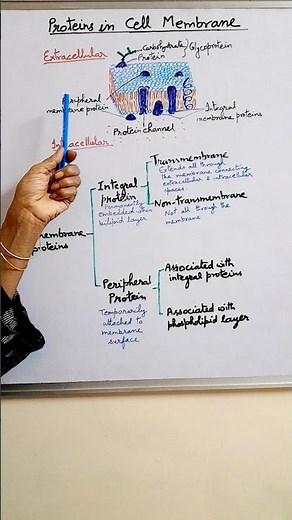 Proteins in Cell Membrane
Extracellular
Carbohydrate
Protein
Glycoprotein
Peripheral
membrane protein
Integral
membrane proteins
Protein channel
Intracellular
Transmembrane
Extends all through
the membrane connecting
extracellular & intracellular
spaces
Integral
protein
Permanently
embedded within
bilipid layer
Non-transmembrane
Not all through the
membrane
membrane
proteins
Associated with
integral proteins
Peripheral
Protein
Temporarily
attached to
membrane
surface
Associated with
phospholipid layer